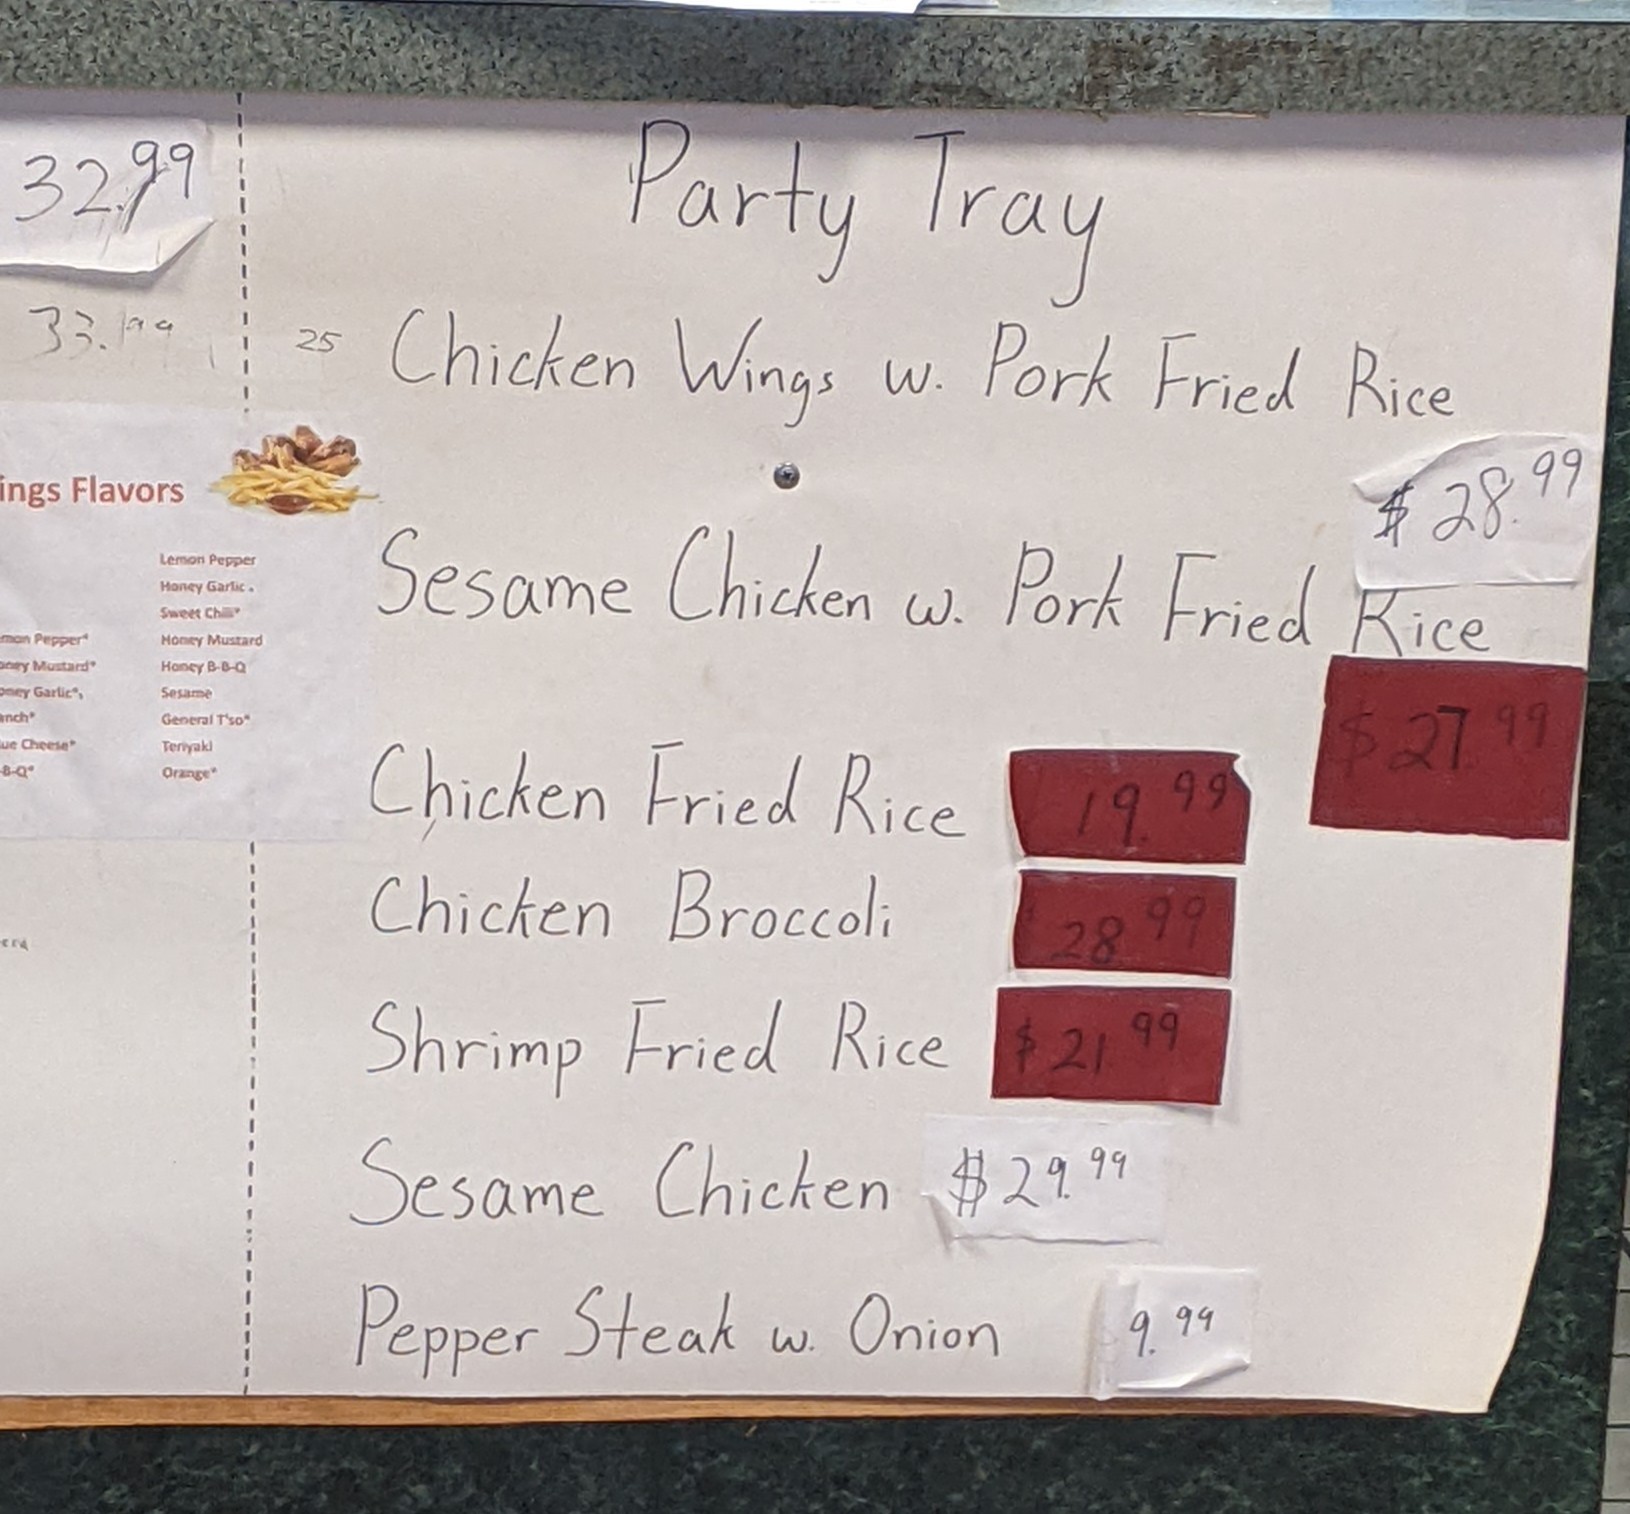 32.99
33.99
ings Flavors
Lemon Pepper
Honey Garlic
Sweet Chili*
mon Pepper* Honey Mustard
oney Mustard* Honey B-B-Q
oney Garlic* Sesame
anch* General T'so*
ue Cheese* Teriyaki
-B-Q* Orange*
Party Tray
25 Chicken Wings w. Pork Fried Rice
$28.99
Sesame Chicken w. Pork Fried Rice
$27.99
Chicken Fried Rice 19.99
Chicken Broccoli 28.99
Shrimp Fried Rice $21.99
Sesame Chicken $29.99
Pepper Steak w. Onion 9.99